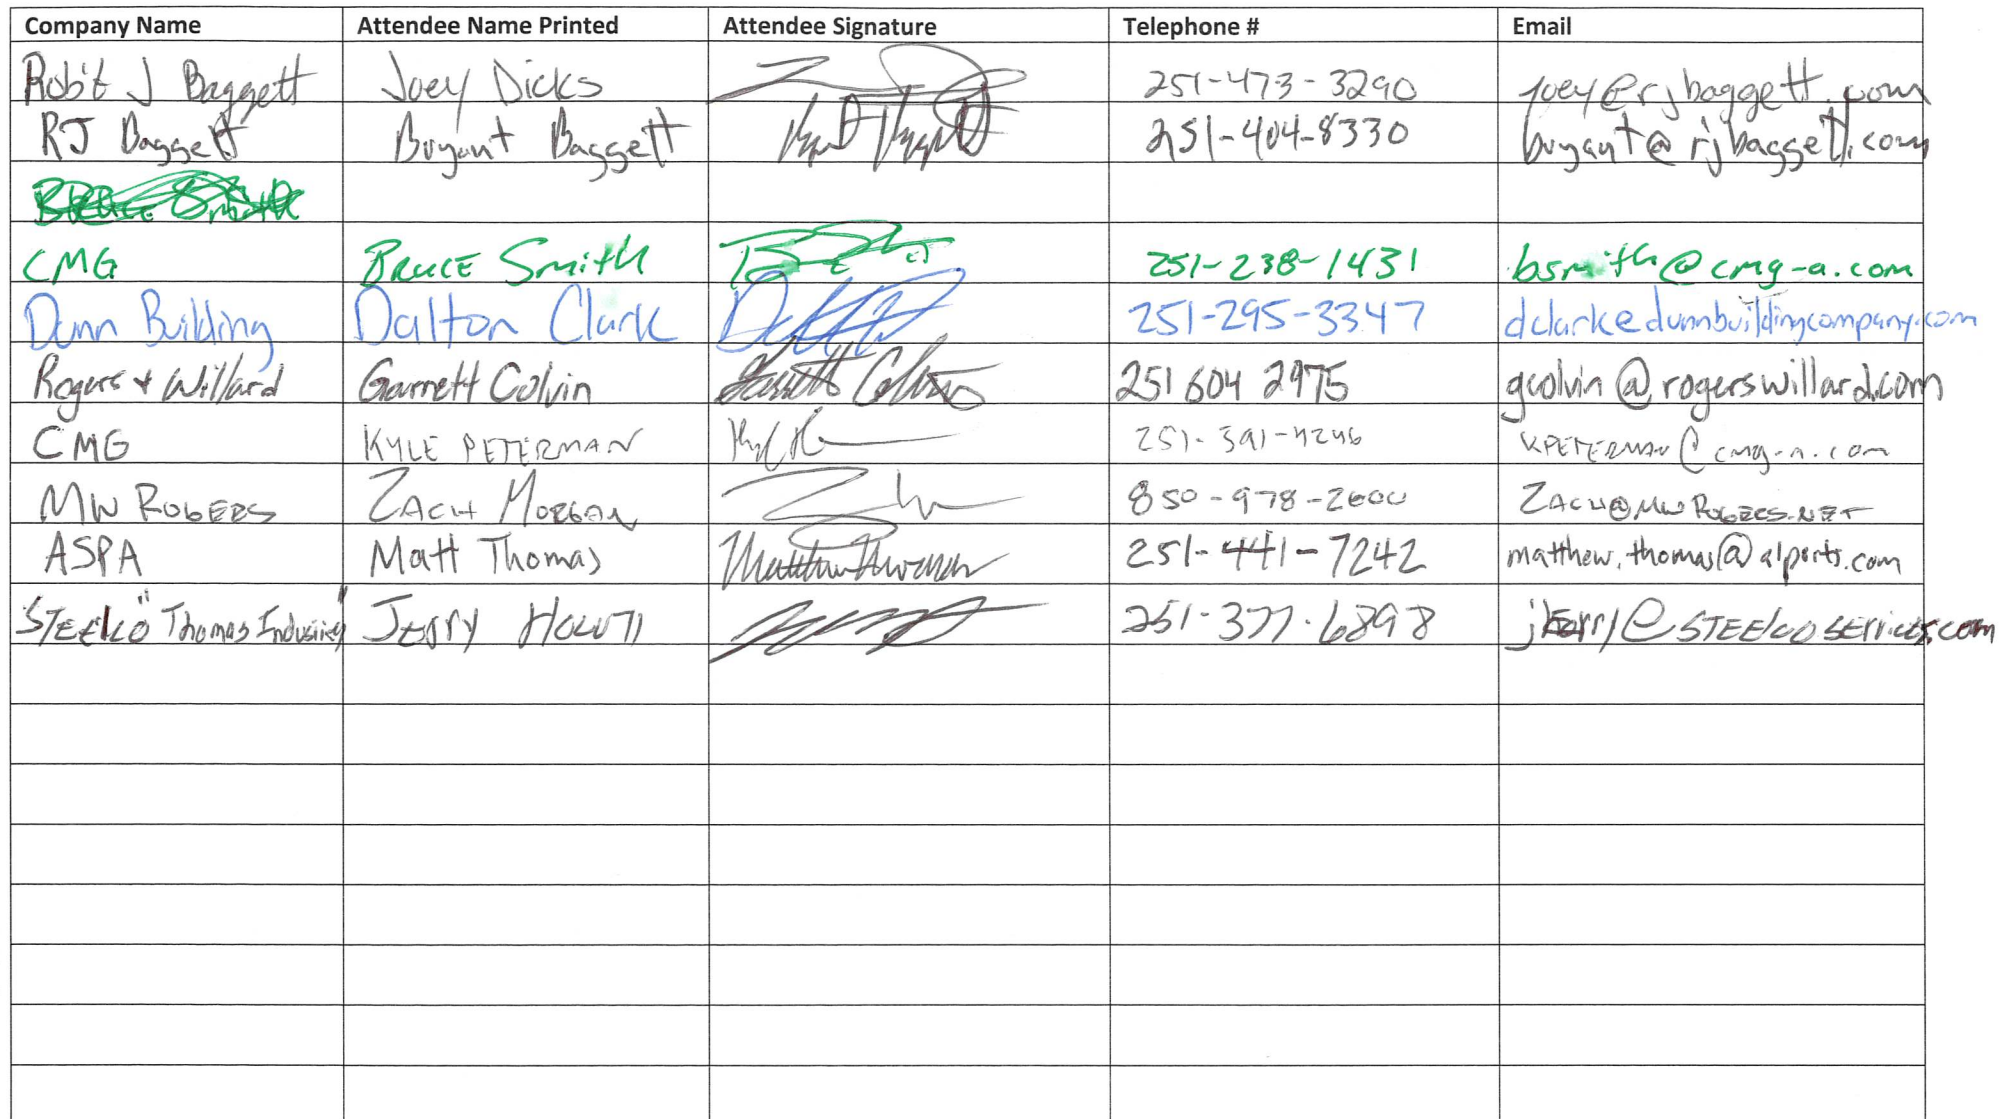 Company Name Attendee Name Printed Attendee Signature Telephone # Email
Rob't J Baggett Joey Dicks 251-473-3290 joey@rjbaggett.com
RJ Baggett Bryant Baggett 251-404-8330 bryant@rjbaggett.com
CMG Bruce Smith 251-238-1431 bsmith@cmg-a.com
Dunn Building Dalton Clark 251-295-3347 dclark@dunnbuildingcompany.com
Rogers + Willard Garrett Colvin 251 604 2975 gcolvin@rogerswillard.com
CMG KYLE PETERMAN 251-391-4246 KPETERMAN@cmg-a.com
MW ROGERS ZACH MORGAN 850-978-2600 ZACH@MWROGERS.NET
ASPA Matt Thomas 251-441-7242 matthew.thomas@alports.com
STEELCO "Thomas Industry" Jerry 251-377-6898